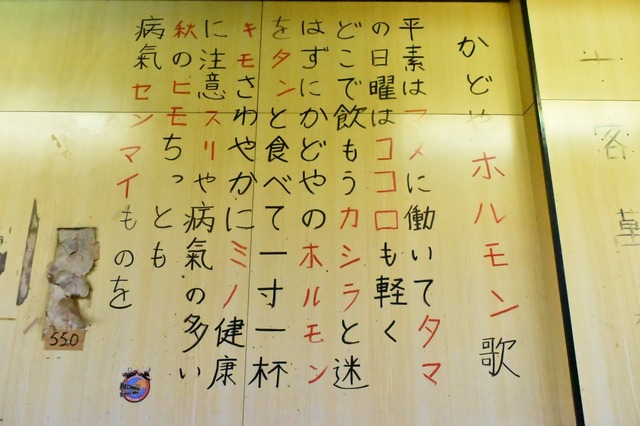 かどやホルモン歌
平素はマメに働いてタマ
の日曜はココロも軽く
どこで飲もうカシラと迷
はずにかどやのホルモン
をタンと食べて一寸一杯
キモさわやかにミノ健康
に注意スリや病氣の多い
秋のヒモちっとも
病氣センマイものを
550
客